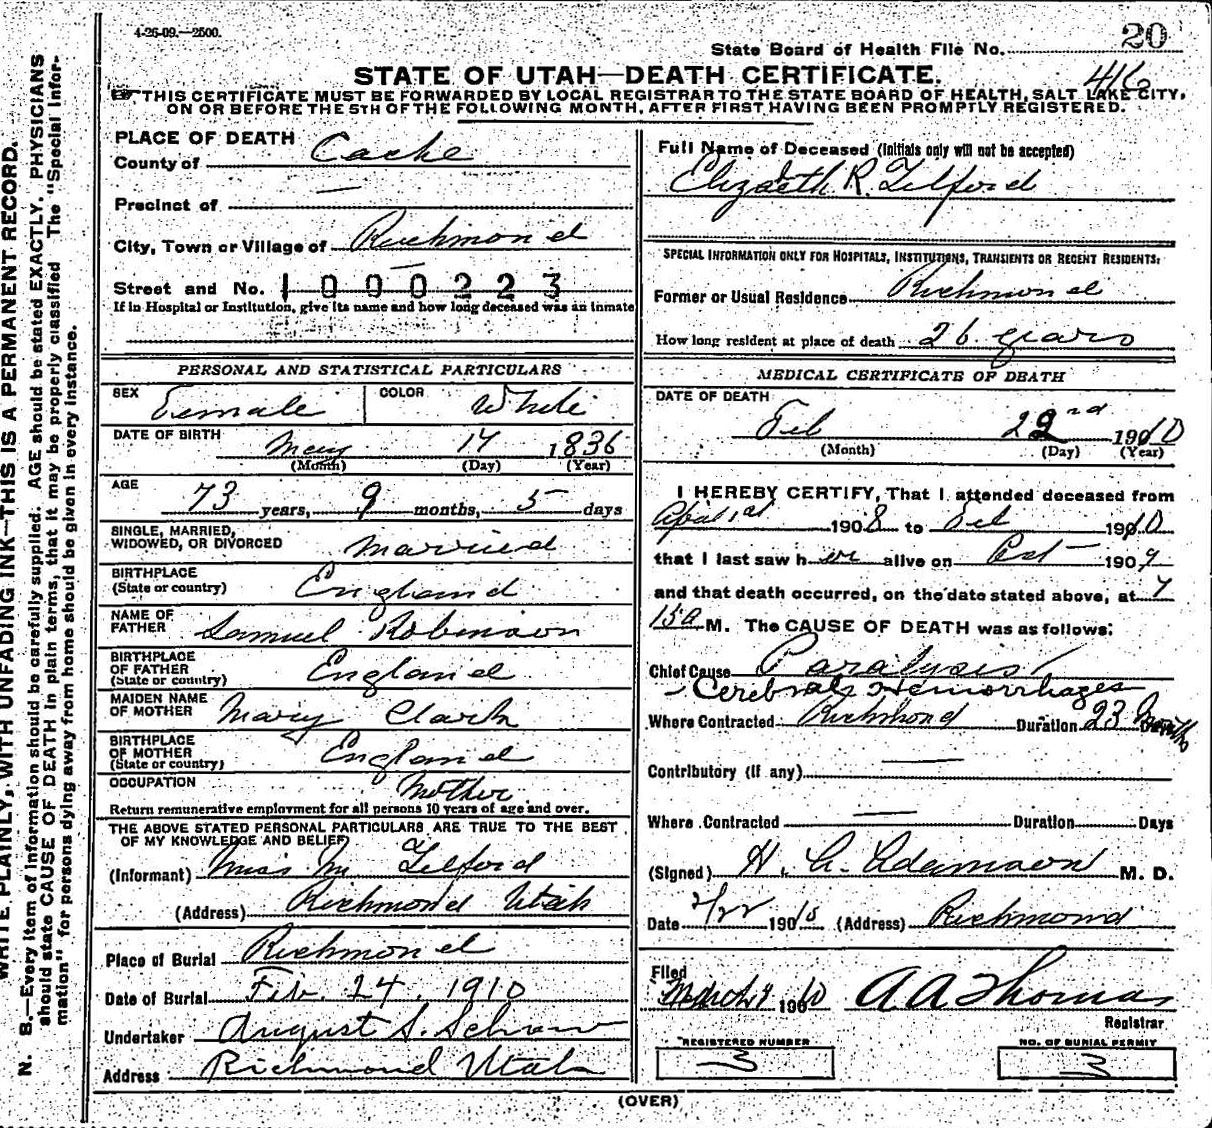 4-26-09.—2500.
20
State Board of Health File No.
STATE OF UTAH—DEATH CERTIFICATE.
416
THIS CERTIFICATE MUST BE FORWARDED BY LOCAL REGISTRAR TO THE STATE BOARD OF HEALTH, SALT LAKE CITY,
ON OR BEFORE THE 5TH OF THE FOLLOWING MONTH, AFTER FIRST HAVING BEEN PROMPTLY REGISTERED.
WRITE PLAINLY, WITH UNFADING INK—THIS IS A PERMANENT RECORD.
N. B.—Every item of information should be carefully supplied. AGE should be stated EXACTLY. PHYSICIANS
should state CAUSE OF DEATH in plain terms, that it may be properly classified. The "Special Infor-
mation" for persons dying away from home should be given in every instance.
PLACE OF DEATH
County of Cache
Precinct of —
City, Town or Village of Richmond
Street and No. 1000223
If in Hospital or Institution, give its name and how long deceased was an inmate
PERSONAL AND STATISTICAL PARTICULARS
SEX Female COLOR White
DATE OF BIRTH May 17 1836
(Month) (Day) (Year)
AGE 73 years, 9 months, 5 days
SINGLE, MARRIED,
WIDOWED, OR DIVORCED Married
BIRTHPLACE
(State or country) England
NAME OF
FATHER Samuel Robinson
BIRTHPLACE
OF FATHER
(State or country) England
MAIDEN NAME
OF MOTHER Mary Clark
BIRTHPLACE
OF MOTHER
(State or country) England
OCCUPATION Mother
Return remunerative employment for all persons 10 years of age and over.
THE ABOVE STATED PERSONAL PARTICULARS ARE TRUE TO THE BEST
OF MY KNOWLEDGE AND BELIEF
(Informant) Miss M a Telford
(Address) Richmond Utah
Place of Burial Richmond
Date of Burial Feb. 24. 1910
Undertaker August S. Schow
Address Richmond Utah
Full Name of Deceased (Initials only will not be accepted)
Elizabeth R. Telford
SPECIAL INFORMATION ONLY FOR HOSPITALS, INSTITUTIONS, TRANSIENTS OR RECENT RESIDENTS:
Former or Usual Residence Richmond
How long resident at place of death 26 years
MEDICAL CERTIFICATE OF DEATH
DATE OF DEATH
Feb 22nd 1910
(Month) (Day) (Year)
I HEREBY CERTIFY, That I attended deceased from
April 1st 1908 to Feb 1910
that I last saw her alive on Oct — 1909
and that death occurred, on the date stated above, at 7
15 a M. The CAUSE OF DEATH was as follows:
Chief Cause Paralysis
- Cerebral Hemorrhages
Where Contracted Richmond Duration 23 Months
Contributory (if any) —
Where Contracted — Duration Days
(Signed) H. G. Adamson M. D.
Date 2/22 1910 (Address) Richmond
Filed
March 4 1910 A A Thomas
Registrar
REGISTERED NUMBER
3
NO. OF BURIAL PERMIT
3
(OVER)